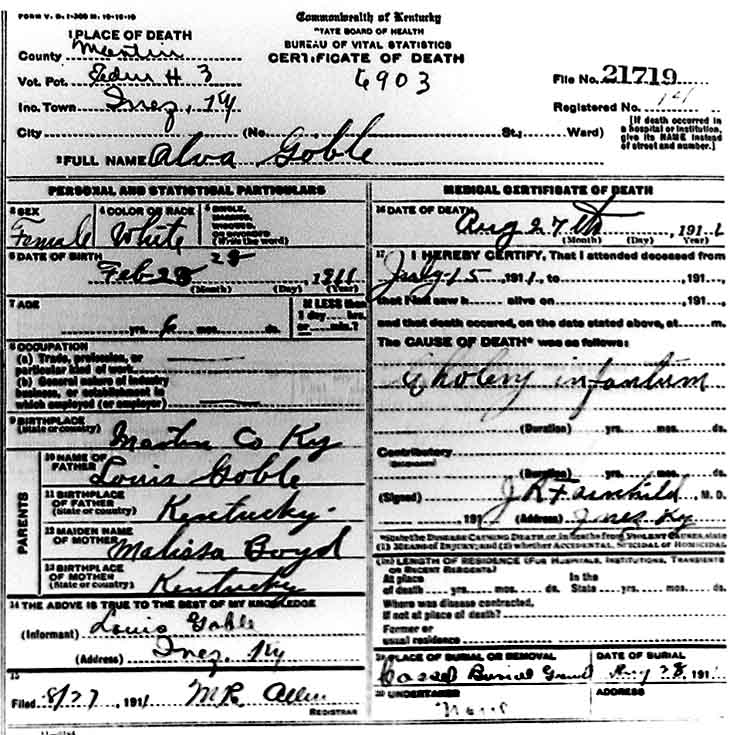 FORM V. S. 1-
Commonwealth of Kentucky
STATE BOARD OF HEALTH
BUREAU OF VITAL STATISTICS
CERTIFICATE OF DEATH
1 PLACE OF DEATH
County Martin
Vot. Pct. 3
6903
File No. 21719
Inc. Town Inez, Ky
Registered No.
City (No. St.; Ward)
[If death occurred in a hospital or institution, give its NAME instead of street and number.]
2 FULL NAME Alva Goble
PERSONAL AND STATISTICAL PARTICULARS
3 SEX
Female
4 COLOR OR RACE
White
5 SINGLE, MARRIED, WIDOWED, OR DIVORCED (Write the word)
6 DATE OF BIRTH
Feb 28 28, 1911
(Month) (Day) (Year)
7 AGE
yrs. 6 mos. ds.
If LESS than 1 day hrs. or min.?
8 OCCUPATION
(a) Trade, profession, or particular kind of work
(b) General nature of industry business, or establishment in which employed (or employer)
9 BIRTHPLACE
(State or country)
Martin Co Ky
PARENTS
10 NAME OF FATHER
Louis Goble
11 BIRTHPLACE OF FATHER
(State or country)
Kentucky
12 MAIDEN NAME OF MOTHER
Malissa Boyd
13 BIRTHPLACE OF MOTHER
(State or country)
Kentucky
14 THE ABOVE IS TRUE TO THE BEST OF MY KNOWLEDGE
(Informant) Louis Goble
(Address) Inez, Ky
15
Filed 8/27, 1911 M R Allen
REGISTRAR
MEDICAL CERTIFICATE OF DEATH
16 DATE OF DEATH
Aug 27th, 1911
(Month) (Day) (Year)
17 I HEREBY CERTIFY, That I attended deceased from
July 15, 1911, to , 191 ,
that I last saw h alive on , 191 ,
and that death occured, on the date stated above, at m.
The CAUSE OF DEATH* was as follows:
infantum
(Duration) yrs. mos. ds.
Contributory
(Duration) yrs. mos. ds.
(Signed) Fairchild, M. D.
, 191 (Address) Inez Ky
*State the DISEASE CAUSING DEATH, or in deaths from VIOLENT CAUSES, state
(1) MEANS OF INJURY; and (2) whether ACCIDENTAL, SUICIDAL OR HOMICIDAL
LENGTH OF RESIDENCE (FOR HOSPITALS, INSTITUTIONS, TRANSIENTS OR RECENT RESIDENTS)
At place of death yrs. mos. ds.
In the State yrs. mos. ds.
Where was disease contracted, if not at place of death?
Former or usual residence
19 PLACE OF BURIAL OR REMOVAL
Burial
DATE OF BURIAL
Aug 28, 1911
20 UNDERTAKER
ADDRESS